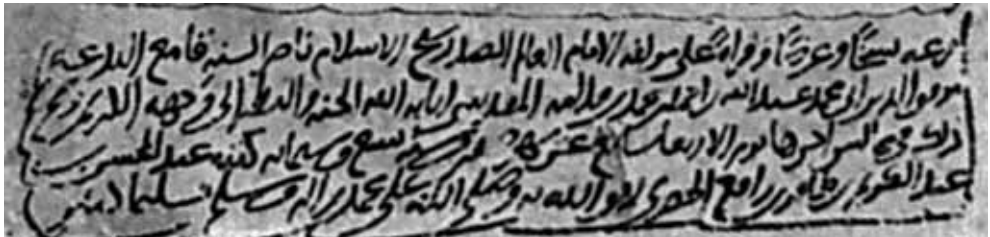 نسخًا وعرضًا وقراءة على مؤلفه الامام العالم الصدر شيخ الاسلام ناصر السنة قامع البدعة
موفق الدين ابي محمد عبد الله بن احمد بن محمد بن قدامه المقدسي اثابه الله الجنة والنظر الى وجهه الكريم
ذلك في مجالس اخرها يوم الاربعاء سابع عشر سنه تسع وستمائه كتبه عبد المحسن بن
عبد الكريم بن ظافر بن رافع الحصري الله به وصلى الله على محمد واله وسلم تسليما